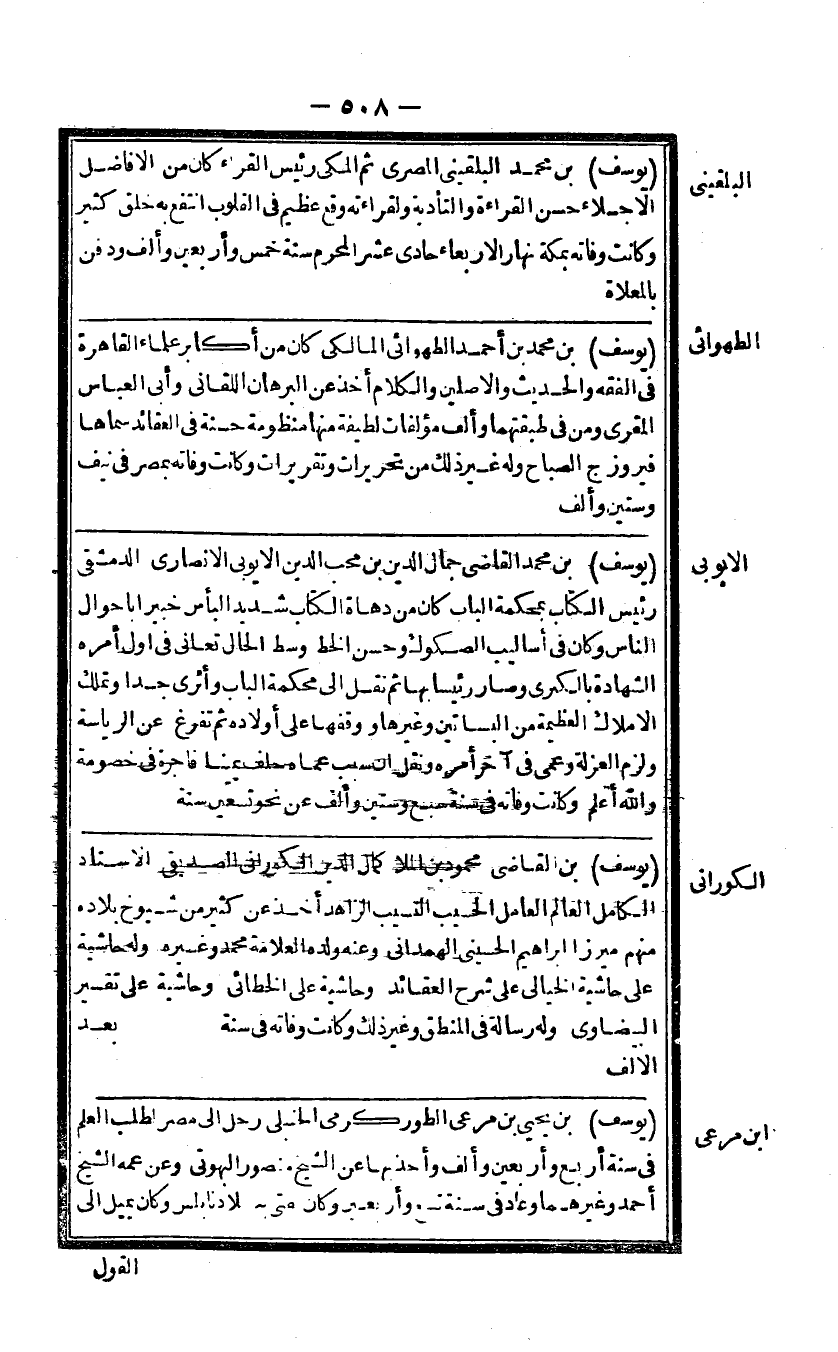 — ٥٠٨ —
البلقيني
(يوسف) بن محمد البلقيني المصرى ثم المكى رئيس القراء كان من الافاضل
الاجلاء حسن القراءة والتأدية ولقراءته وقع عظيم فى القلوب انتفع به خلق كثير
وكانت وفاته بمكة نهار الاربعاء حادى عشر المحرم سنة خمس وأربعين وألف ودفن
بالمعلاة
الطهوائى
(يوسف) بن محمد بن أحمد الطهوائى المالكى كان من أكابر علماء القاهرة
فى الفقه والحديث والاصلين والكلام أخذ عن البرهان اللقانى وأبى العباس
المقرى ومن فى طبقتهما وألف مؤلفات لطيفة منها منظومة حسنة فى العقائد سماها
فيروزج الصباح وله غير ذلك من تحريرات وتقريرات وكانت وفاته بمصر فى نيف
وستين وألف
الايوبى
(يوسف) بن محمد القاضى جمال الدين بن محب الدين الايوبى الانصارى الدمشقى
رئيس الكتاب بمحكمة الباب كان من دهاة الكتاب شديد البأس خبيرا باحوال
الناس وكان فى أساليب الصكوك وحسن الخط وسط الحال تعانى فى اول أمره
الشهادة بالكبرى وصار رئيسا بها ثم نقل الى محكمة الباب وأثرى جدا وتملك
الاملاك العظيمة من البساتين وغيرها ووقفها على أولاده ثم تفرغ عن الرياسة
ولزم العزلة وعمى فى آخر أمره ونقل ان سبب عماه حلف يمينا فاجرة فى خصومة
والله أعلم وكانت وفاته فى سنة سبع وستين وألف عن نحو تسعين سنة
الكورانى
(يوسف) بن القاضى محمود بن الملا كمال الدين الكورانى الصديقى الاستاد
الكامل العالم العامل الحسيب النسيب الزاهد أخذ عن كثير من شيوخ بلاده
منهم ميرزا ابراهيم الحسينى الهمدانى وعنه ولده العلامة محمد وغيره وله حاشية
على حاشية الخيالى على شرح العقائد وحاشية على الخطائى وحاشية على تفسير
البيضاوى وله رسالة فى المنطق وغير ذلك وكانت وفاته فى سنة بعد
الالف
ابن مرعى
(يوسف) بن يحيى بن مرعى الطوركرمى الحنبلى رحل الى مصر لطلب العلم
فى سنة أربع وأربعين وألف وأخذ بها عن الشيخ منصور البهوتى وعن عمه الشيخ
أحمد وغيرهما وعاد فى سنة وأربعين وكان يفتى ببلاد نابلس وكان يميل الى
القول